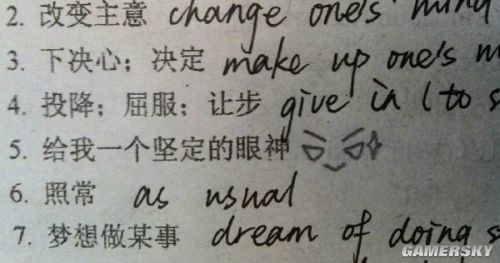 2. 改变主意 change one's mind
3. 下决心；决定 make up one's m
4. 投降；屈服；让步 give in (to s
5. 给我一个坚定的眼神
6. 照常 as usual
7. 梦想做某事 dream of doing s
GAMERSKY